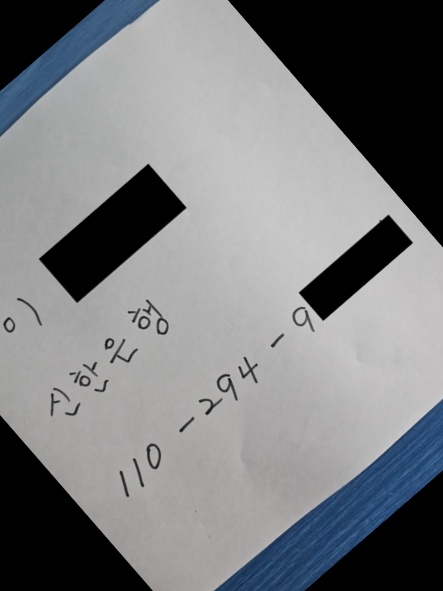 이)
신한은행
110-294-9